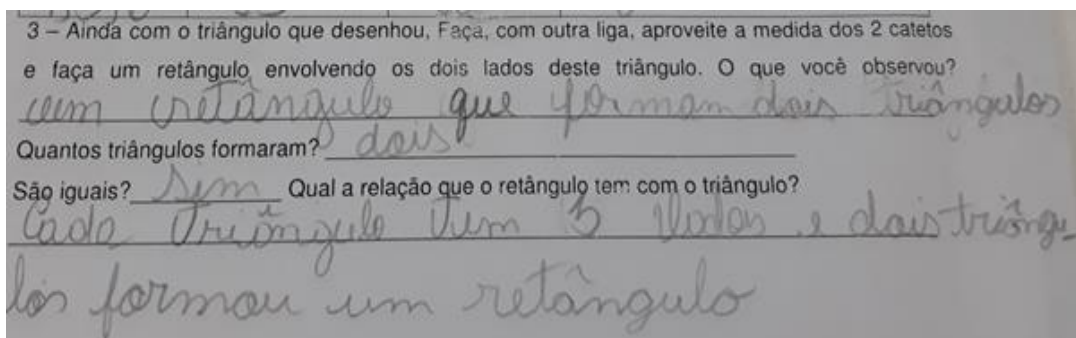 3 – Ainda com o triângulo que desenhou, Faça, com outra liga, aproveite a medida dos 2 catetos
e faça um retângulo envolvendo os dois lados deste triângulo. O que você observou?
um retângulo que formam dois triângulos
Quantos triângulos formaram? dois
São iguais? Sim Qual a relação que o retângulo tem com o triângulo?
Cada triângulo tem 3 lados e dois triângu_
los formou um retângulo